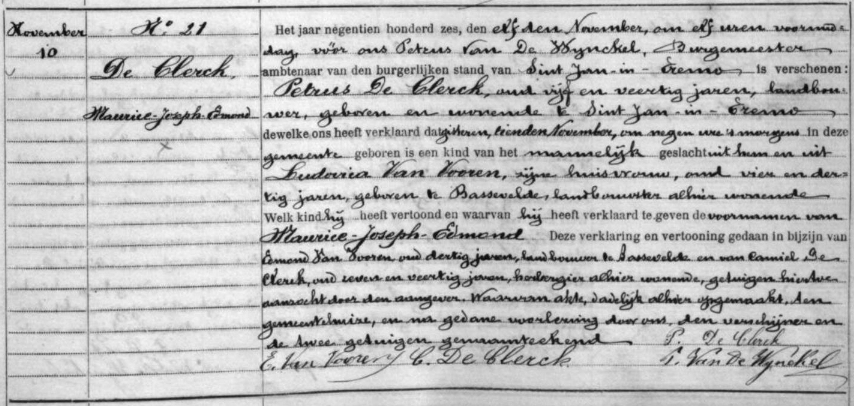 November
10
N° 21
De Clerck,
Maurice-Joseph-Edmond
Het jaar negentien honderd zes, den elfden November, om elf uren voormid-
dag, vóór ons Petrus Van De Wynckel, Burgemeester
ambtenaar van den burgerlijken stand van Sint Jan-in-Eremo is verschenen:
Petrus De Clerck, oud vijf en veertig jaren, landbou-
wer, geboren en wonende te Sint Jan-in-Eremo
dewelke ons heeft verklaard dat gisteren, tienden November, om negen ure 's morgens in deze
gemeente geboren is een kind van het mannelijk geslacht uit hem en uit
Ludovica Van Vooren, zijne huisvrouw, oud vier en der-
tig jaren, geboren te Bassevelde, landbouwster alhier wonende
Welk kind hij heeft vertoond en waarvan hij heeft verklaard te geven de voornamen van
Maurice-Joseph-Edmond Deze verklaring en vertooning gedaan in bijzijn van
Edmond Van Vooren, oud dertig jaren, landbouwer te Bassevelde en van Camiel De
Clerck, oud zeven en veertig jaren, herbergier alhier wonende, getuigen hiertoe
aanzocht door den aangever. Waarvan akte, dadelijk alhier opgemaakt, ten
gemeentehuize, en na gedane voorlezing door ons, den verschijner en
de twee getuigen genaamteekend
P. De Clerck
E. Van Vooren C. De Clerck P. Van De Wynckel